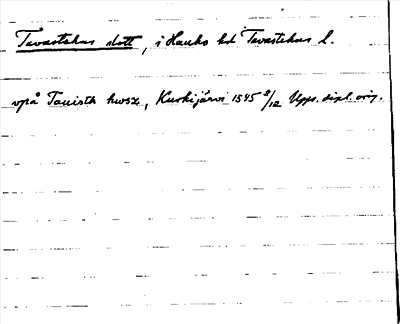 Tavastehus slott, i Hauho hd Tavastehus l.
vpå Tauistk hwsz, Kurkijärvi 1545 8/12 Upps. dipl. orig.